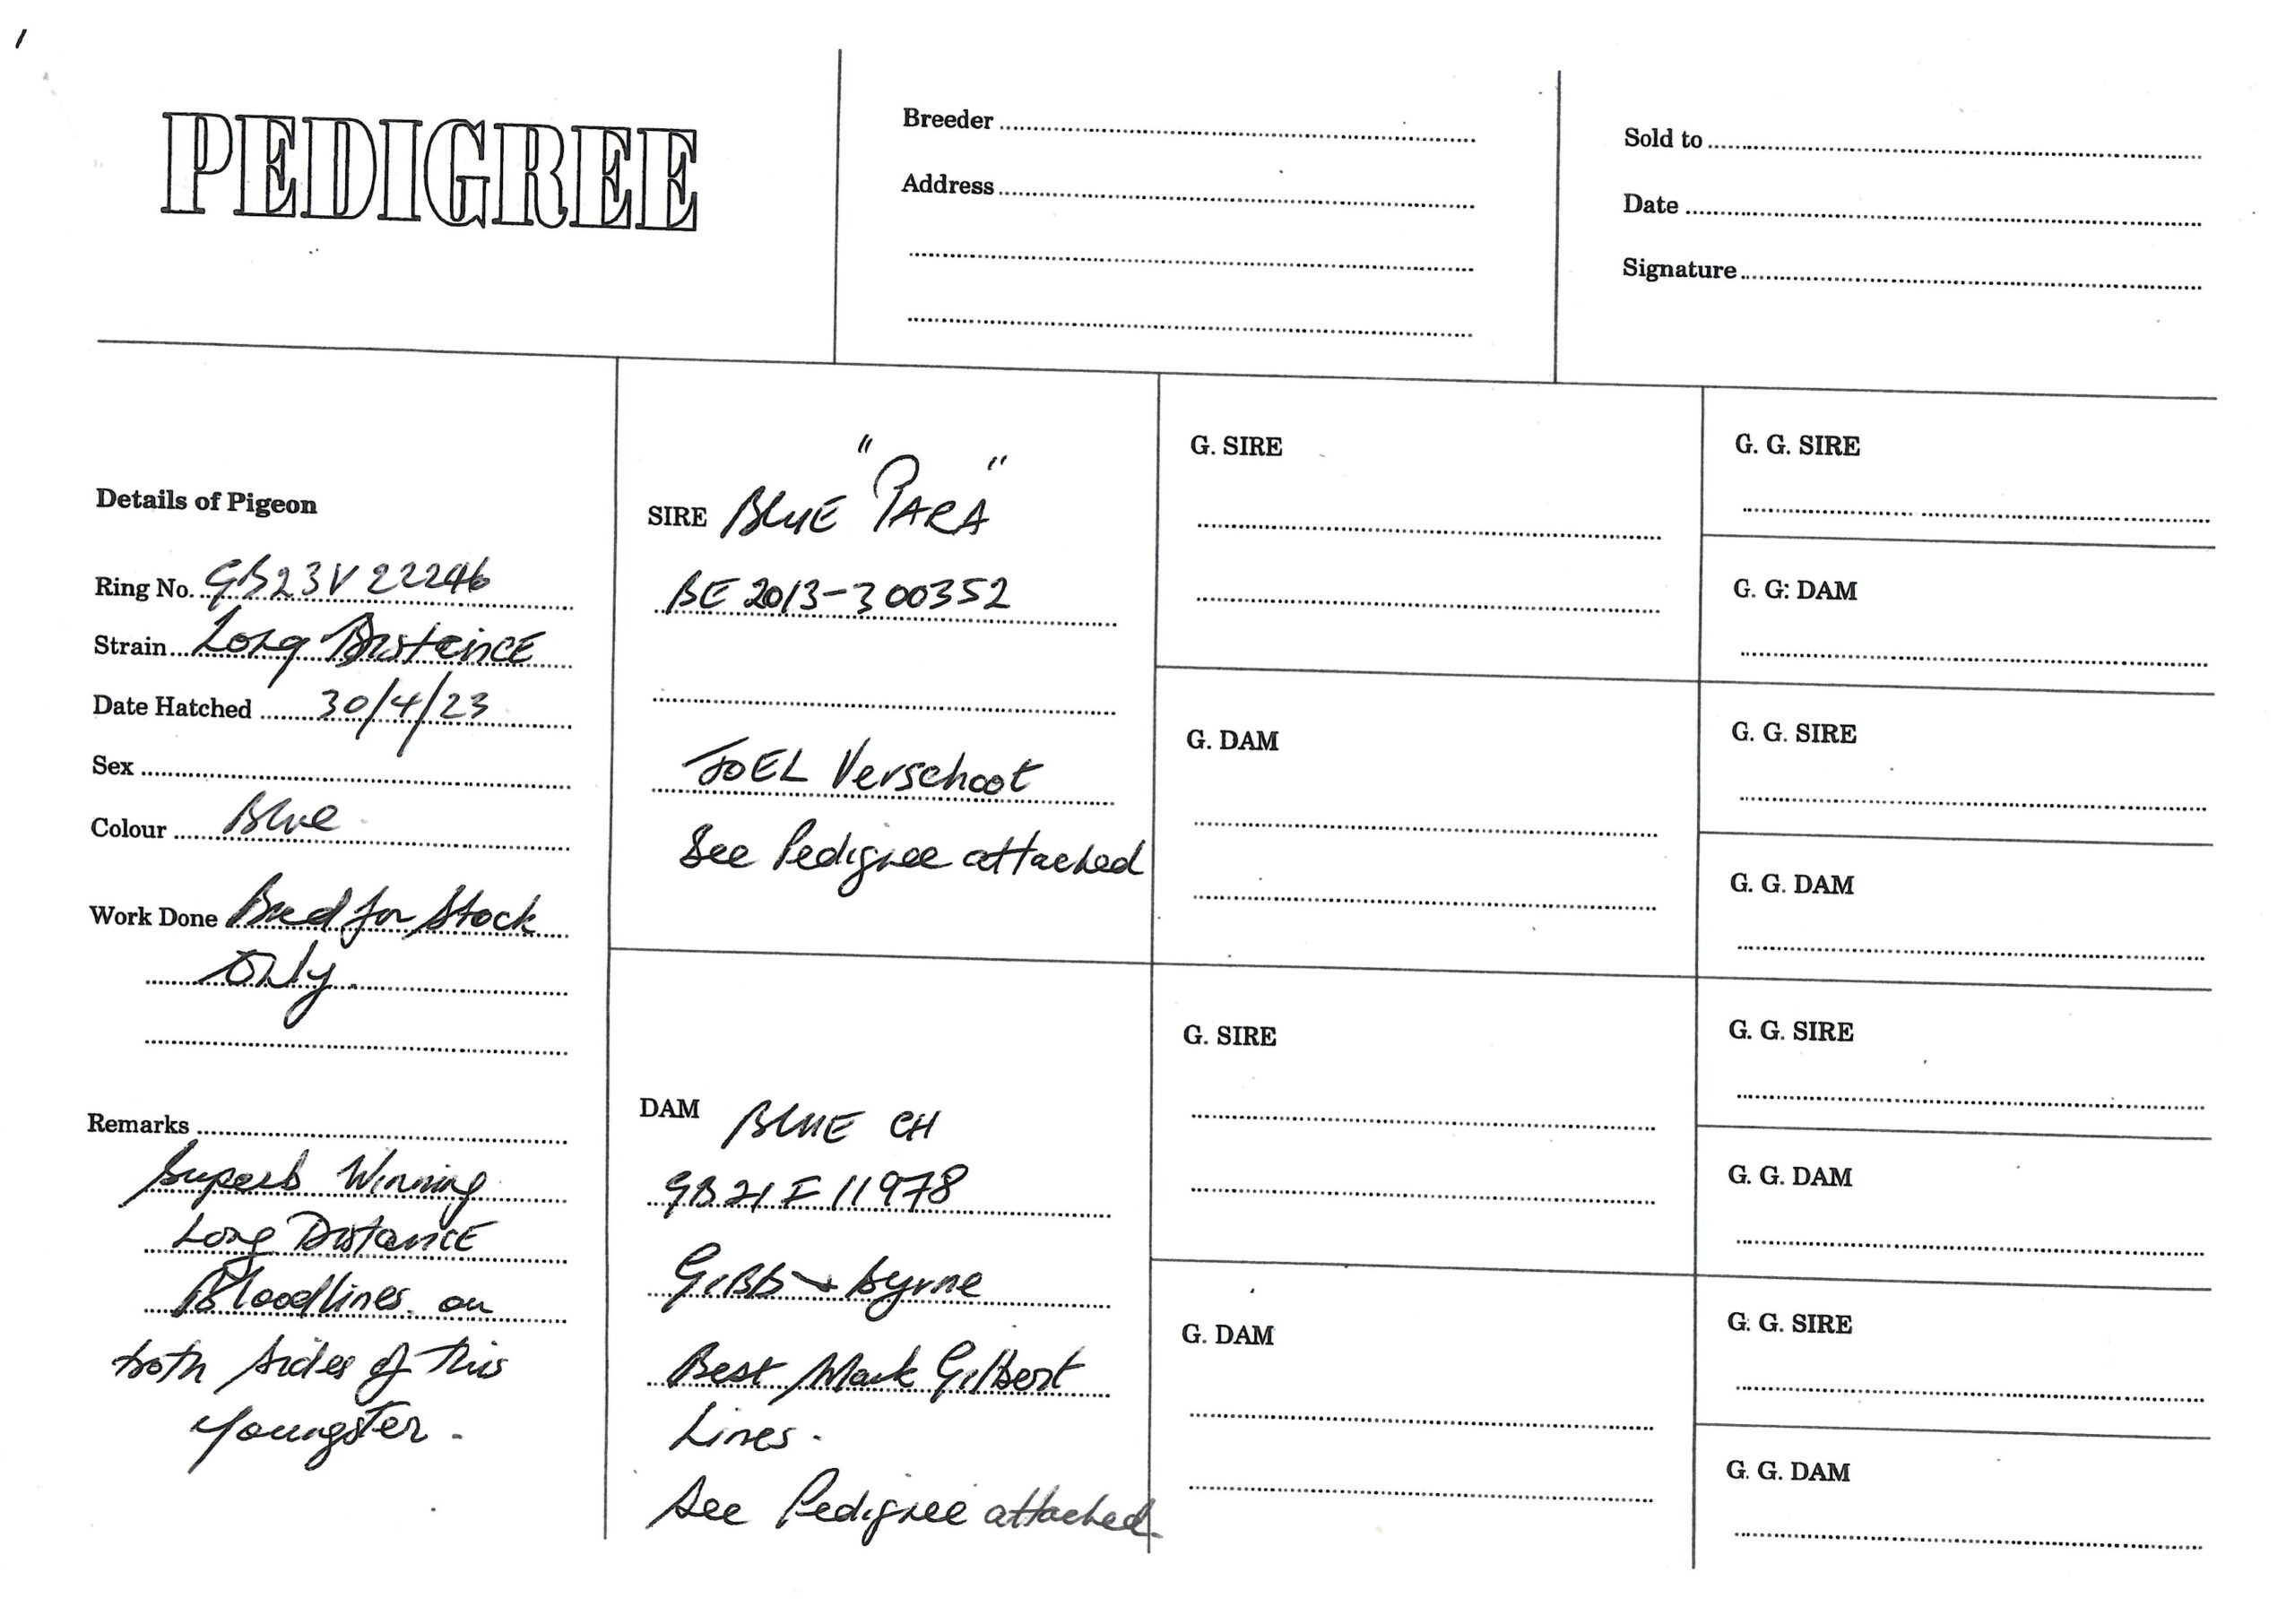 PEDIGREE
Breeder
Address
Sold to
Date
Signature
Details of Pigeon
Ring No. GB23V22246
Strain Long Distance
Date Hatched 30/4/23
Sex
Colour Blue
Work Done Bred for Stock
Only.
Remarks
Superb Winning
Long Distance
Bloodlines on
both sides of this
Youngster.
SIRE BLUE "PARA"
BE 2013-300352
JOEL Verschoot
See Pedigree attached
DAM BLUE CH
GB21F11978
GIBB + Byrne
Best Mark Gilbert
Lines.
See Pedigree attached
G. SIRE
G. DAM
G. SIRE
G. DAM
G. G. SIRE
G. G: DAM
G. G. SIRE
G. G. DAM
G. G. SIRE
G. G. DAM
G. G. SIRE
G. G. DAM